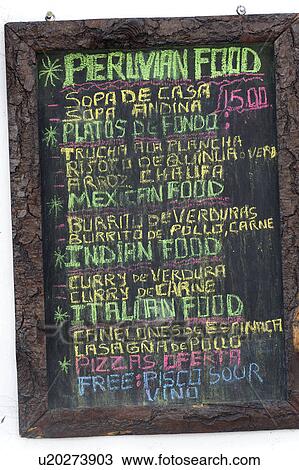 * PERUVIAN FOOD
SOPA DE CASA
SOPA ANDINA
15.00
* PLATOS DE FONDO:
TRUCHA A LA PLANCHA
RISOTO DE QUINUA O VERD
ARROZ CHAUFA
* MEXICAN FOOD
BURRITO DE VERDURAS
BURRITO DE POLLO, CARNE
* INDIAN FOOD
CURRY DE VERDURA
CURRY DE CARNE
* ITALIAN FOOD
CANELONES DE ESPINACA
LASAGNA DE POLLO
* PIZZAS OFERTA
FREE: PISCO SOUR
VINO
u20273903 www.fotosearch.com